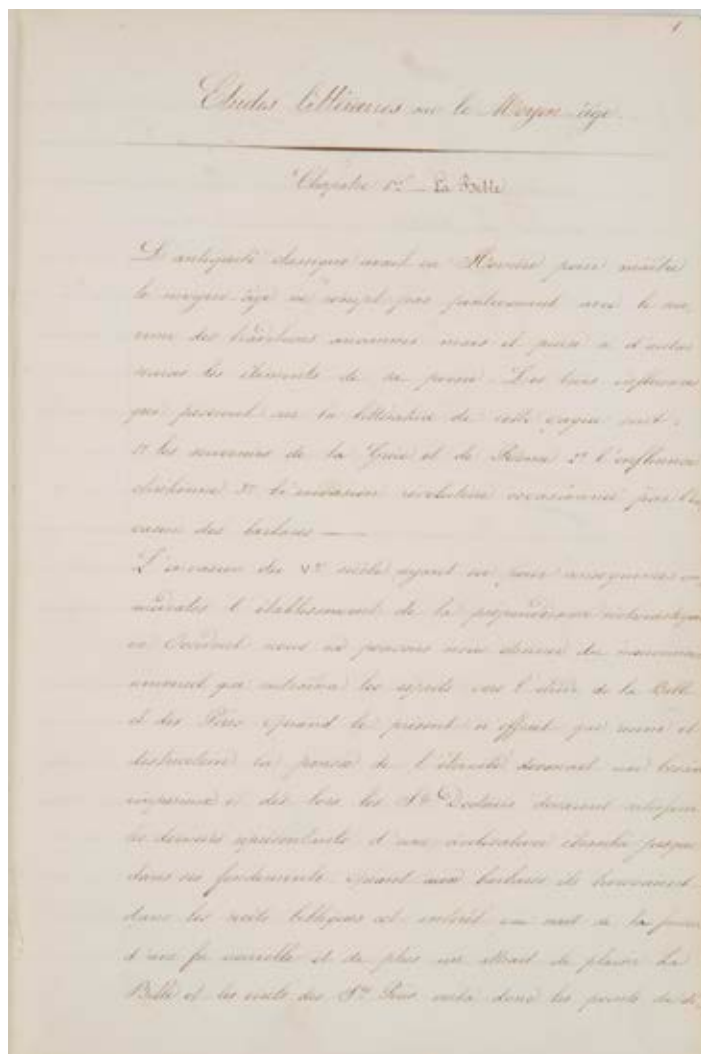 1
Etudes littéraires sur le Moyen âge.
Chapitre 1er La Bible
L'antiquité classique avait eu Homère pour maître
le moyen âge ne rompt pas entièrement avec le
des traditions anciennes mais il puise à d'autres
sources les éléments de sa poésie. Les trois influences
qui pesèrent sur la littérature de cette époque sont :
1º les souvenirs de la Grèce et de Rome 2º l'influence
chrétienne 3º la révolution occasionnée par l'in
vasion des barbares —
L'invasion du Ve siècle ayant eu pour conséquences im
médiates l'établissement de la prépondérance
en Occident nous ne pouvons nous étonner du mouvement
universel qui entraîna les esprits vers l'étude de la Bible
et des Pères quand le présent n'offrait que ruine et
destruction la pensée de l'éternité devenait un besoin
impérieux et dès lors les Sts Docteurs devaient
les derniers représentants d'une civilisation ébranlée jusque
dans ses fondements quant aux barbares ils trouvaient
dans les récits bibliques cet intérêt qui naît de la
d'une foi nouvelle et de plus un attrait de plaisir La
Bible et les écrits des Sts Pères voilà donc les points de dé